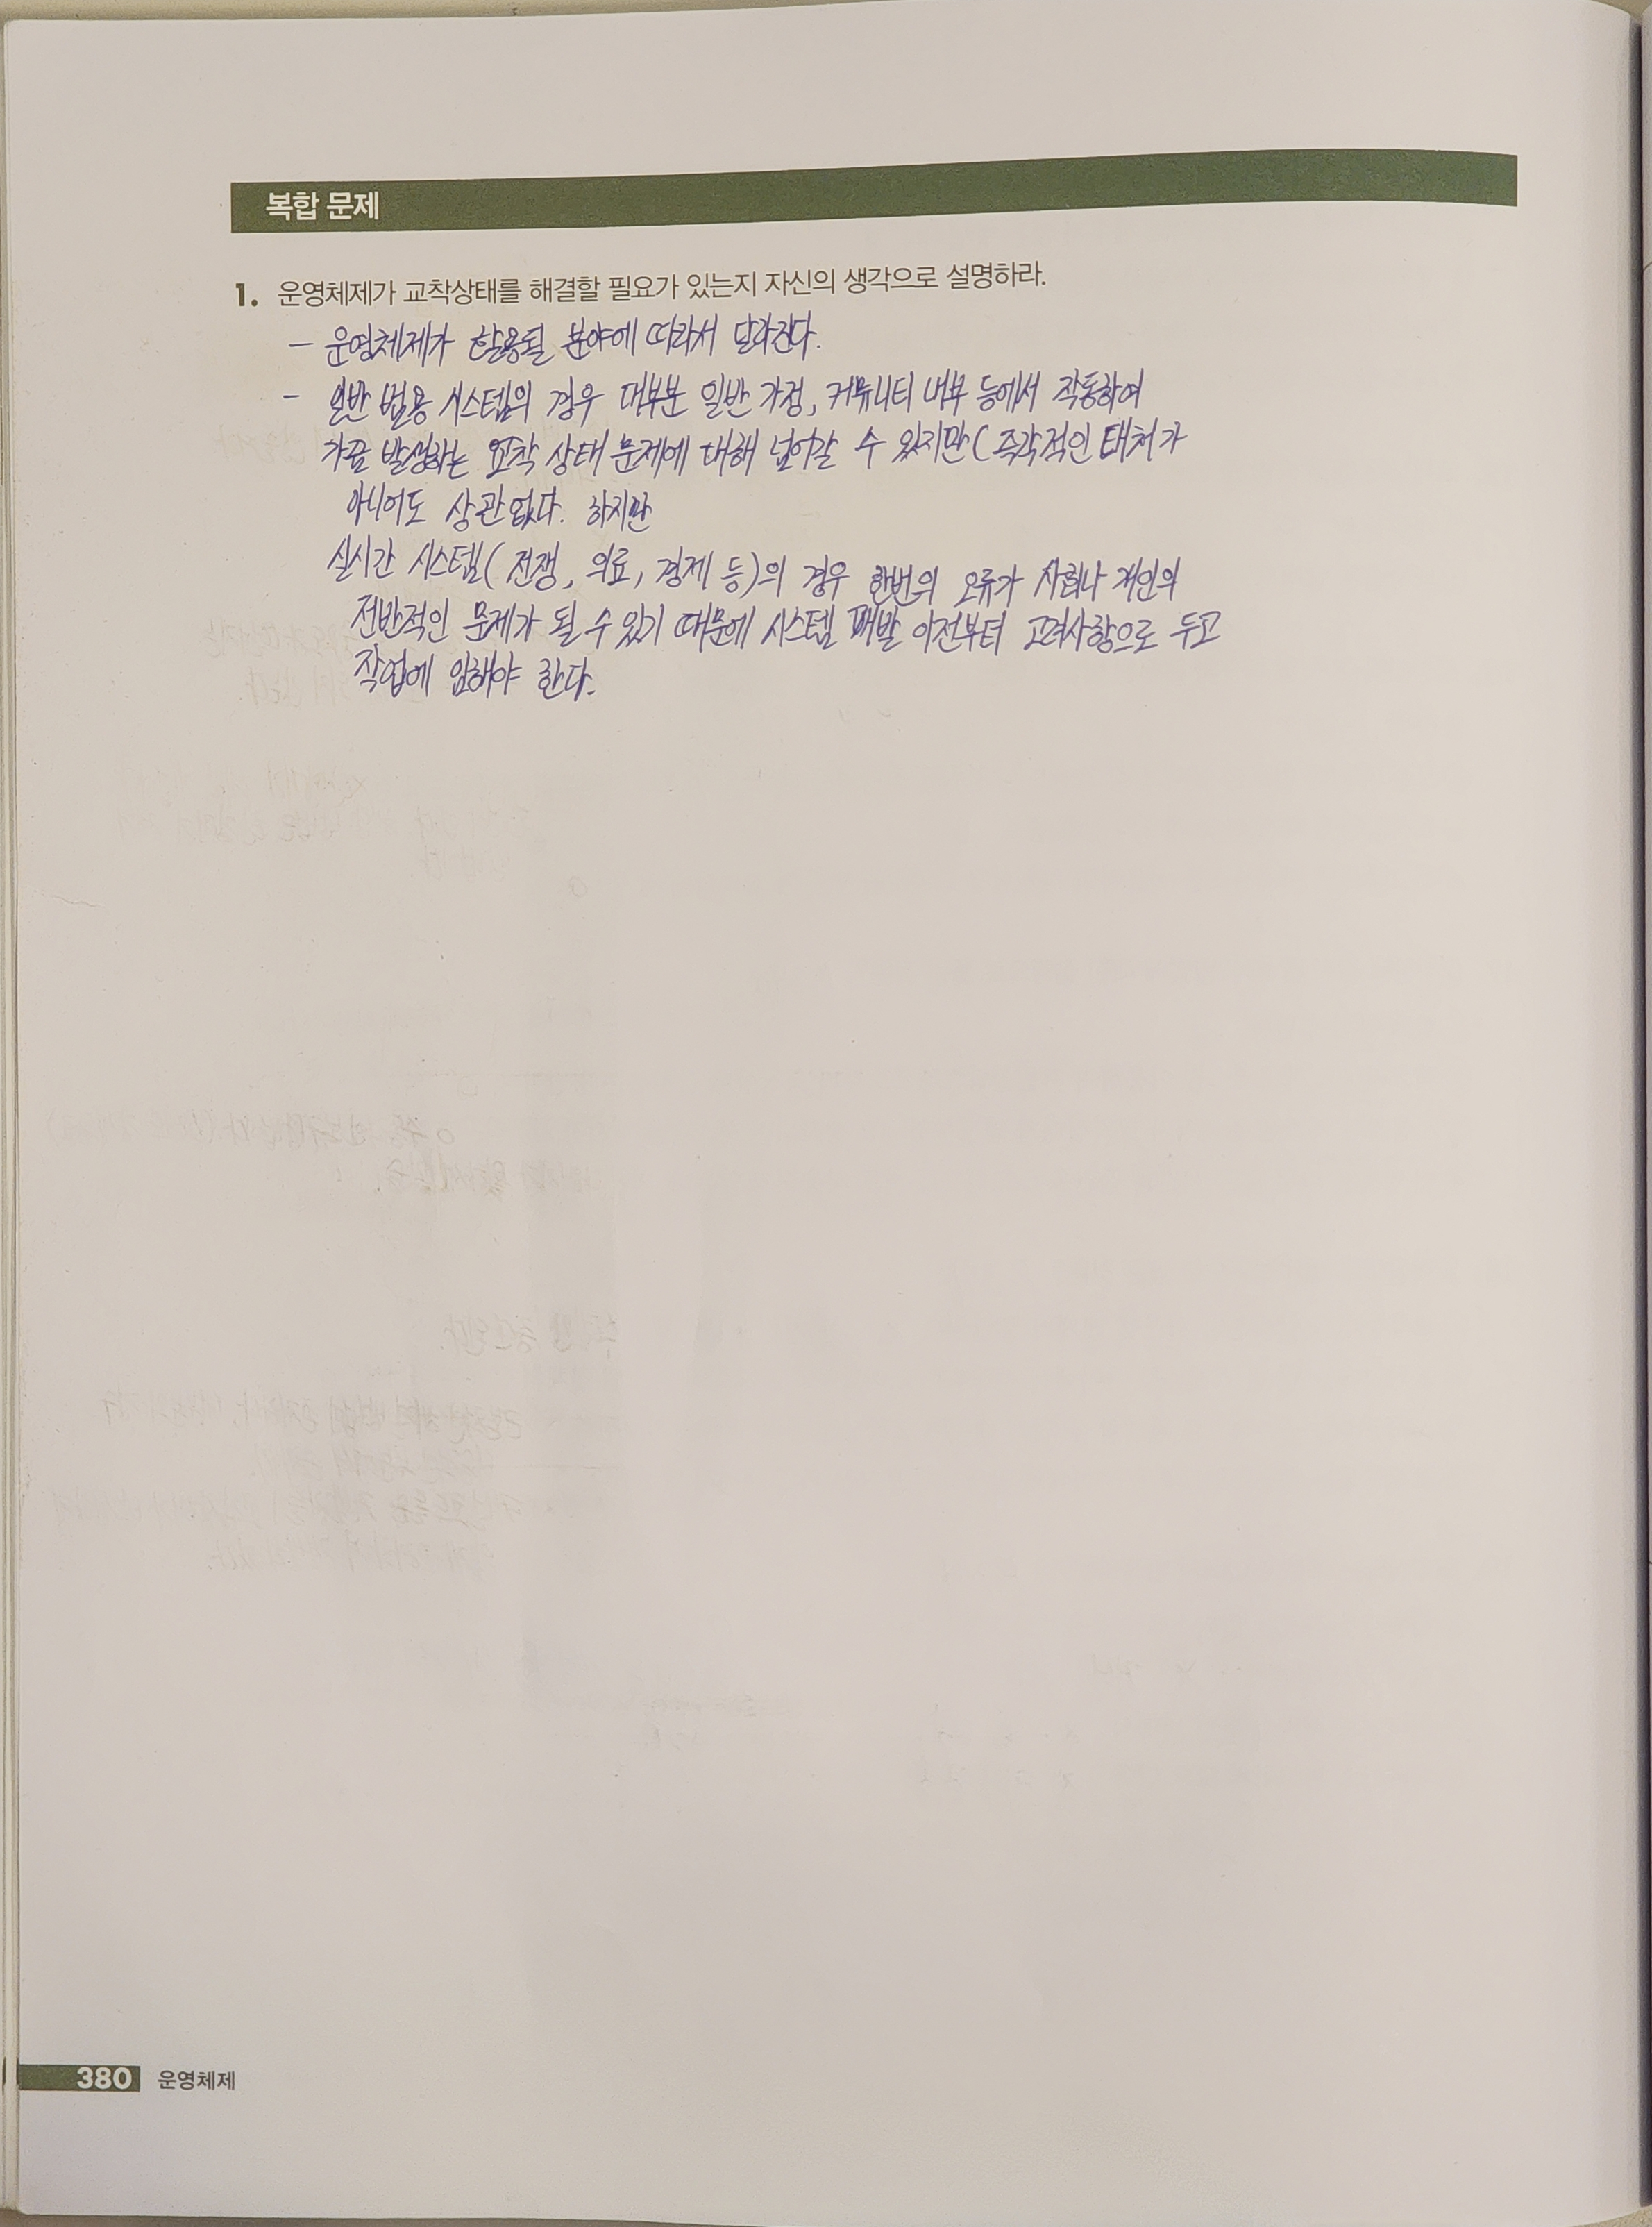 복합 문제
1. 운영체제가 교착상태를 해결할 필요가 있는지 자신의 생각으로 설명하라.
- 운영체제가 활용될 분야에 따라서 달라진다.
- 일반 범용 시스템의 경우 대부분 일반 가정, 커뮤니티 내부 등에서 작동하여
가끔 발생하는 교착 상태 문제에 대해 넘어갈 수 있지만 ( 즉각적인 대처가
아니어도 상관없다. 하지만
실시간 시스템( 전쟁, 의료, 경제 등)의 경우 한번의 오류가 사회나 개인의
전반적인 문제가 될 수 있기 때문에 시스템 개발 이전부터 고려사항으로 두고
작업에 임해야 한다.
380 운영체제